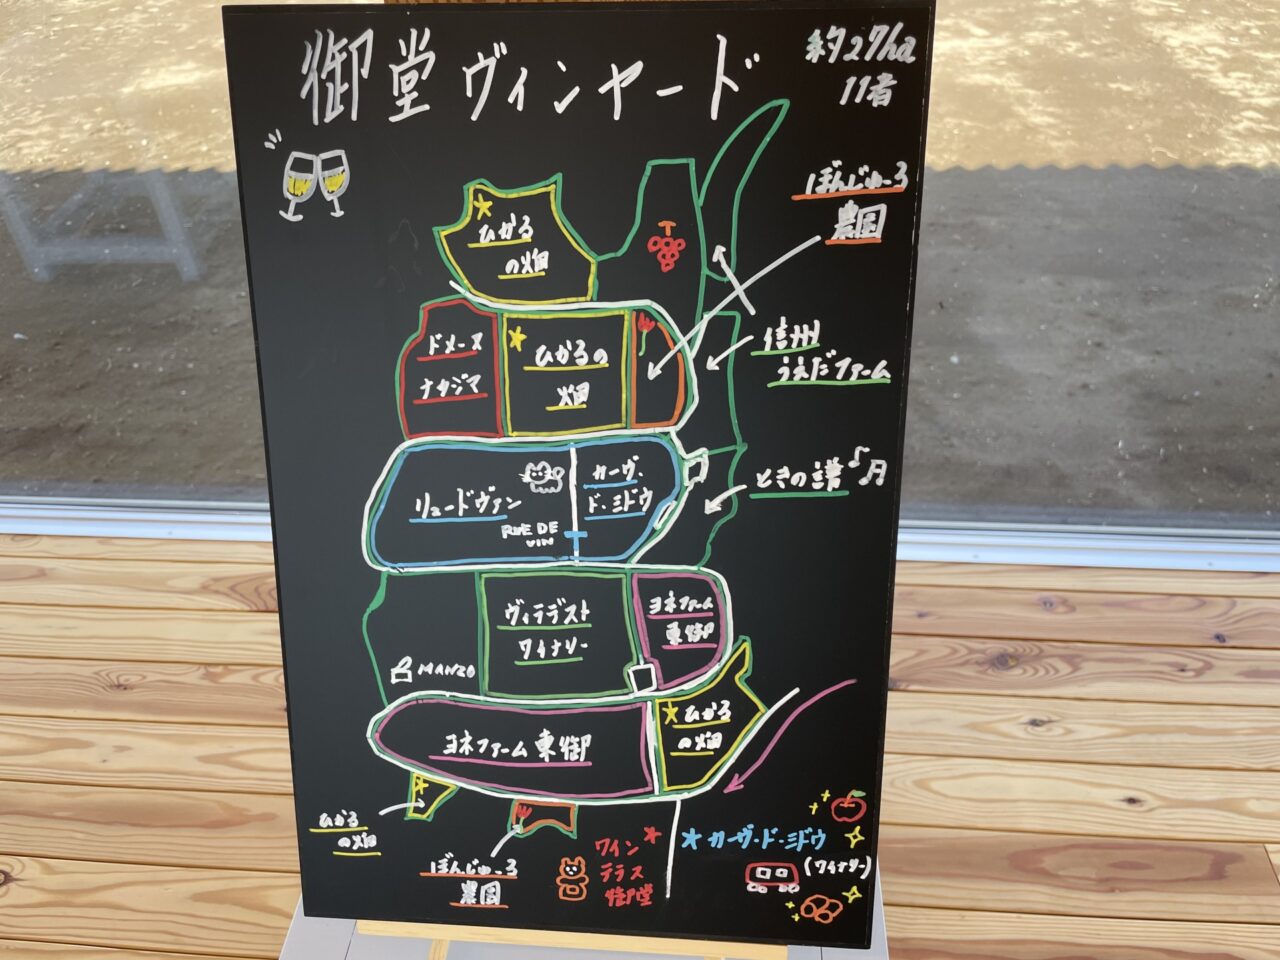 御堂ヴィンヤード
約27ha
11者
ぼんじゅーる
農園
ひかる
の畑
ドメーヌ
ナカジマ
ひかるの
畑
信州
うえだファーム
リュードヴァン
RUE DE
VIN
カーヴ・
ド・ミドウ
ときの譜
ヴィラデスト
ワイナリー
ヨネファーム
東御
MANZO
ヨネファーム東御
ひかる
の畑
ひかる
の畑
ぼんじゅーる
農園
ワイン
テラス
御堂
カーヴ・ド・ミドウ
(ワイナリー)